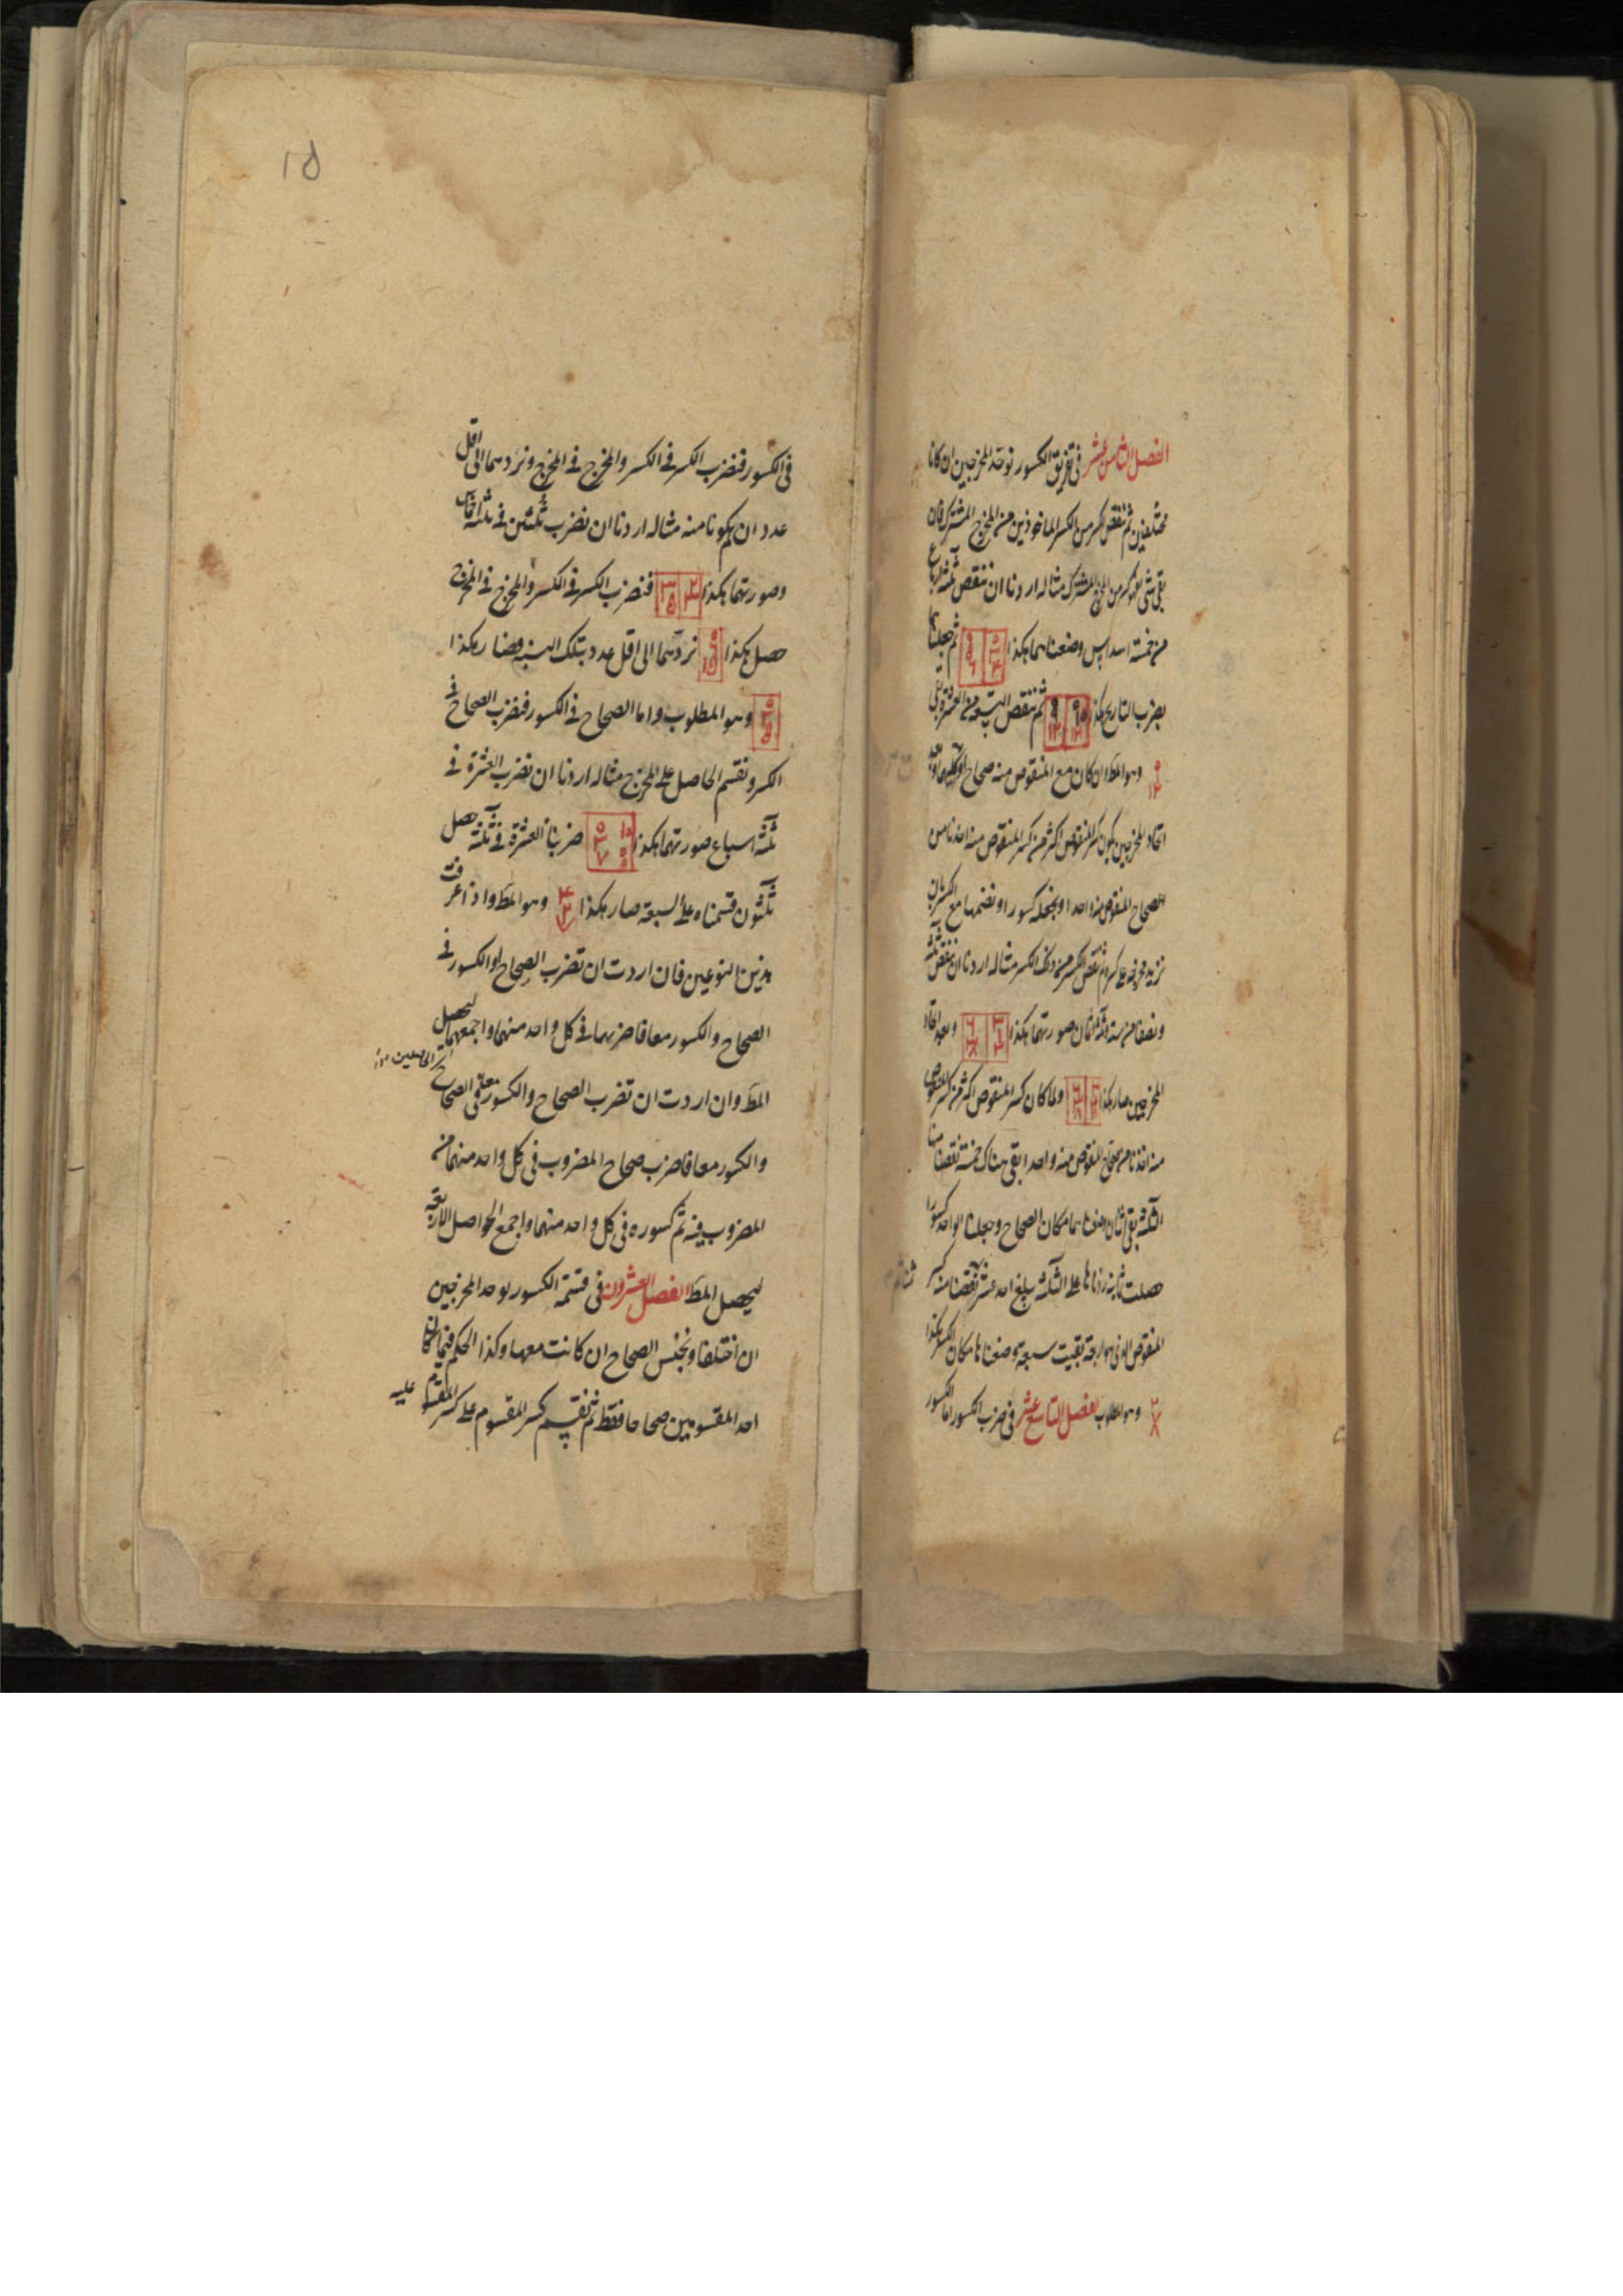 الفصل الثامن عشر في تفريق الكسور نوحد المخرجين ان كانا
مختلفين ثم ننقص كسر من الكسر الماخوذين من المخرج المشترك فان
بقي شئ فهو كسر من المخرج المشترك مثاله اردنا ان ننقص ثلثة ارباع
من خمسة اسداس وضعناهما هكذا ثم جعلناهما
هكذا ثم ننقص التسعة من العشرة بقي
وهو المط وان كان مع المنقوص منه صحاح
اتحاد المخرجين يكون كسر المنقوص اكثر من كسر المنقوص منه اخذنا من
الصحاح المنقوص منه واحدا ونجعله كسورا ونضمها مع الكسر بان
نزيد مخرجه على كسره ثم ننقص الكسر من ذلك الكسر مثاله اردنا ان ننقص ثلثة
ونصفا من ستة وثلثة اثمان صورتهما هكذا وبعد اتحاد
المخرجين صار هكذا ولما كان كسر المنقوص اكثر من كسر المنقوص
منه اخذنا من صحاح المنقوص منه واحدا بقي هناك خمسة نقصنا منها
الثلثة بقي اثنان وضعناهما مكان الصحاح وجعلنا الواحد كسورا
حصلت ثمانية زدناها على الثلثة بلغ احد عشر نقصنا منه كسر
المنقوص الذي هو اربعة بقيت سبعة وضعناها مكان الكسر هكذا
٢ ٧ ٨ وهو المطلوب الفصل التاسع عشر في ضرب الكسور اما الكسور
١٥
في الكسور فنضرب الكسر في الكسر والمخرج في المخرج ونردهما الى اقل
عدد ان يكونا منه مثاله اردنا ان نضرب ثلثين في ثلثة اخماس
وصورتهما هكذا فنضرب الكسر في الكسر والمخرج في المخرج
حصل هكذا نردهما الى اقل عدد بتلك النسبة فصار هكذا
وهو المطلوب واما الصحاح في الكسور فنضرب الصحاح في
الكسر ونقسم الحاصل على المخرج مثاله اردنا ان نضرب العشرة في
ثلثة اسباع صورتهما هكذا ضربنا العشرة في ثلثة حصل
ثلثون قسمناه على السبعة صار هكذا ٤ ٢ ٧ وهو المط واذا عرفت
هذين النوعين فان اردت ان تضرب الصحاح او الكسور في
الصحاح والكسور معا فاضربهما في كل واحد منهما واجمعهما ليحصل
المط وان اردت ان تضرب الصحاح والكسور معا في الصحاح
والكسور معا فاضرب صحاح المضروب في كل واحد منهما من
المضروب فيه ثم كسوره في كل واحد منهما واجمع الحواصل الاربعة
ليحصل المط الفصل العشرون في قسمة الكسور نوحد المخرجين
ان اختلفا ونجنس الصحاح ان كانت معها وكذا الحكم فيما كان
احد المقسومين صحاحا فقط ثم نقسم كسر المقسوم على كسر المقسوم عليه